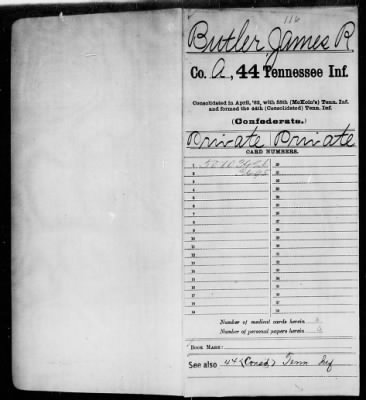 116
Butler, James R
Co. A, 44 Tennessee Inf.
Consolidated in April, '62, with 55th (McKoin's) Tenn. Inf.
and formed the 44th (Consolidated) Tenn. Inf.
(Confederate.)
Private Private
CARD NUMBERS.
1
2
3
4
5
6
7
8
9
10
11
12
13
14
Number of medical cards herein
Number of personal papers herein
BOOK MARK:
See also 44 (Consd) Tenn Inf